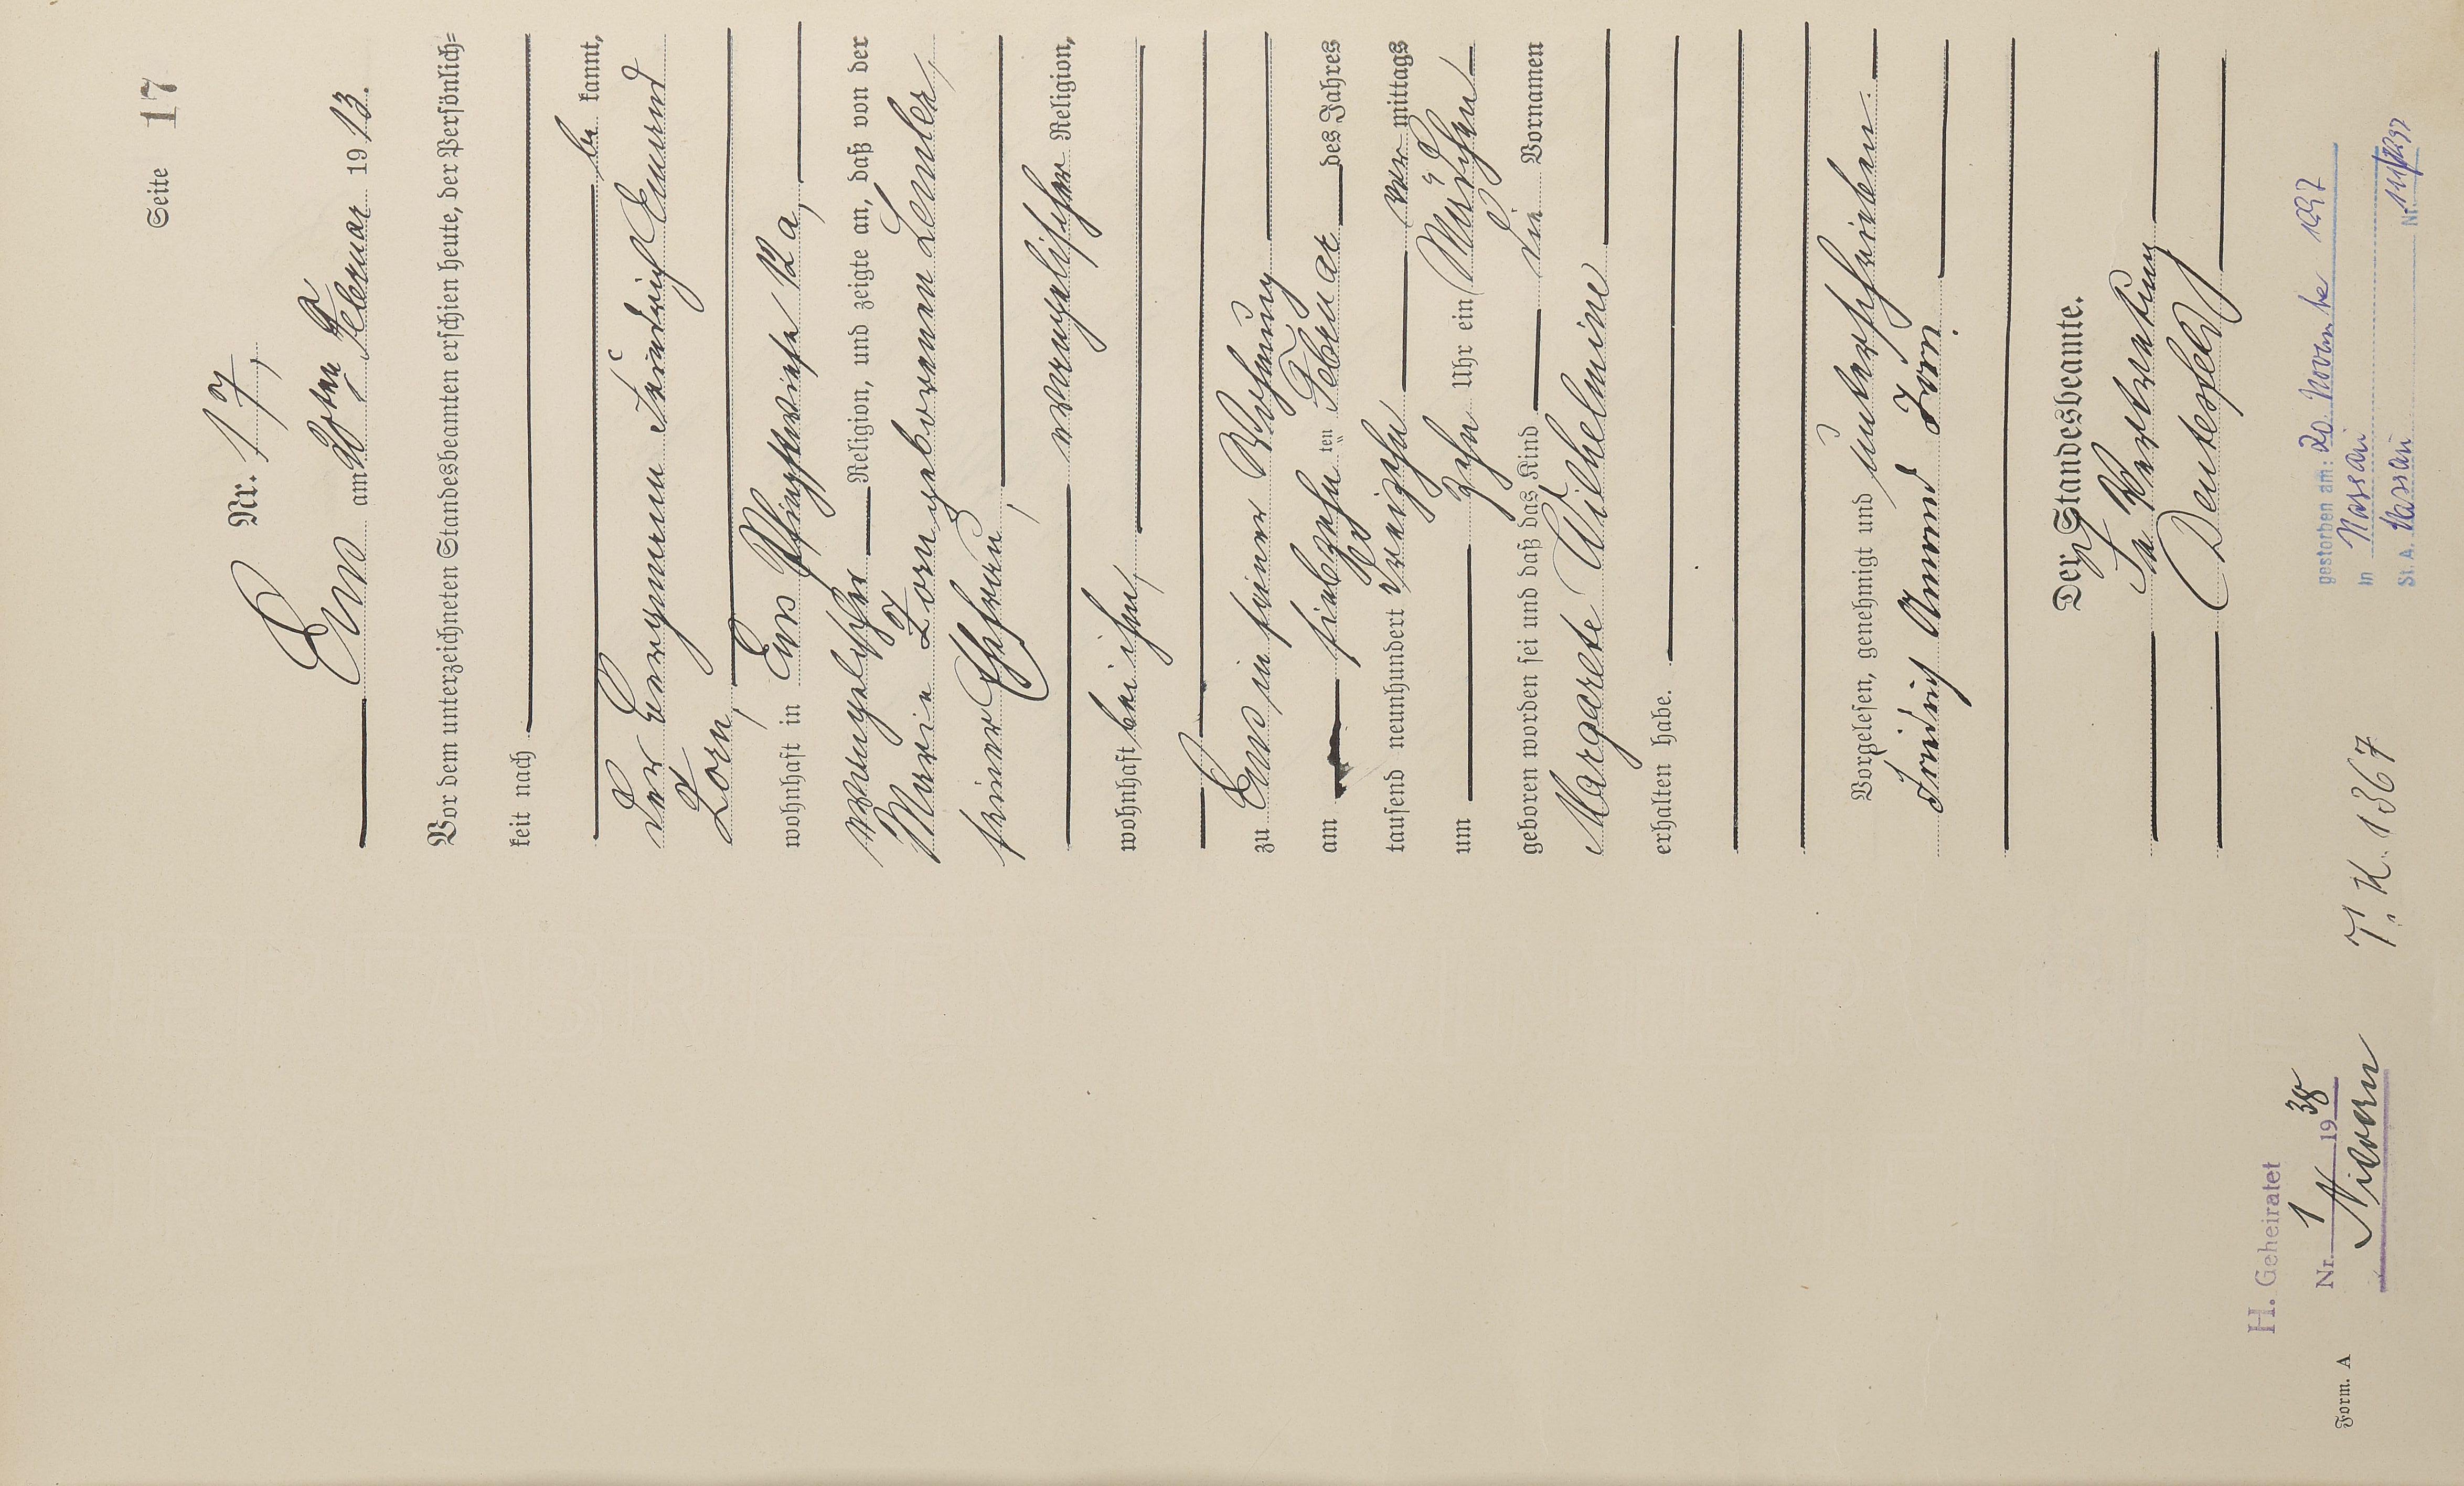 Seite 17
Nr. 17,
Ems am 20ten Februar 1913.
Vor dem unterzeichneten Standesbeamten erschien heute, der Persönlich-
keit nach
be kannt,
der Bergmann Friedrich Amand
Zorn,
wohnhaft in Ems Pfingstwiese 12a,
evangelischer Religion, und zeigte an, daß von der
Marie Zorn geborenen Lemler,
seiner Ehefrau,
evangelischer Religion,
wohnhaft bei ihm,
zu Ems in seiner Wohnung
am siebzehn ten Februar des Jahres
tausend neunhundert dreizehn vor mittags
um zehn Uhr ein Mädchen
geboren worden sei und daß das Kind die Vornamen
Margarete Wilhelmine
erhalten habe.
Vorgelesen, genehmigt und unterschrieben.
Friedrich Amand Zorn
Der Standesbeamte.
In Vertretung
H. Geheiratet
Nr. 1 1938
Nievern
Form. A
T. K. 1367
gestorben am: 20. November 1997
in Nassau
St. A. Nassau Nr.